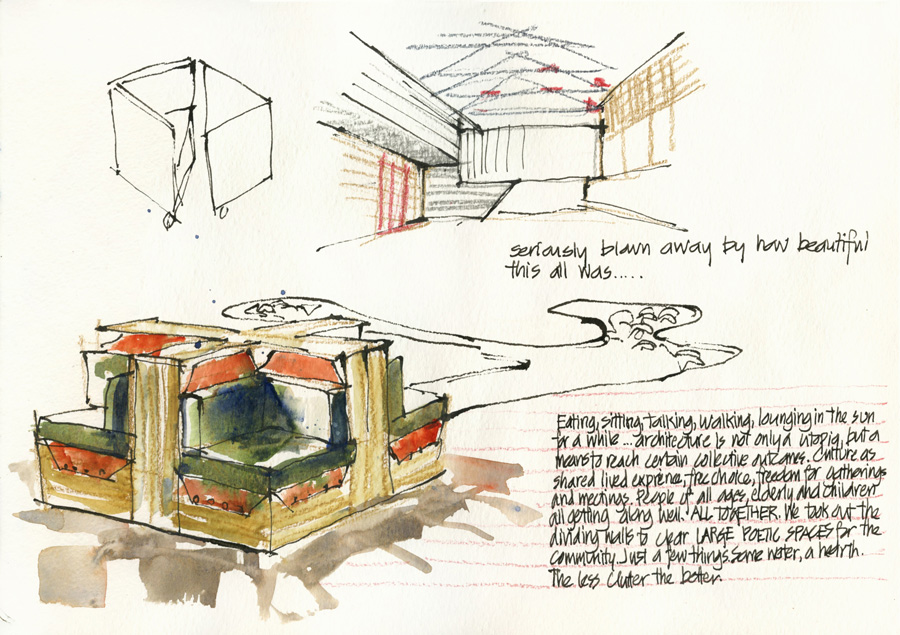 seriously blown away by how beautiful
this all was.....
Eating, sitting, talking, walking, lounging in the sun
for a while... architecture is not only a utopia, but a
means to reach certain collective outcomes. Culture as
shared lived exprence, free choice, freedom for gatherings
and meetings. People of all ages, elderly and children
all getting along well. ALL TOGETHER. We took out the
dividing walls to clear LARGE POETIC SPACES for the
community. Just a few things. Some water, a hearth.
The less clutter the better.